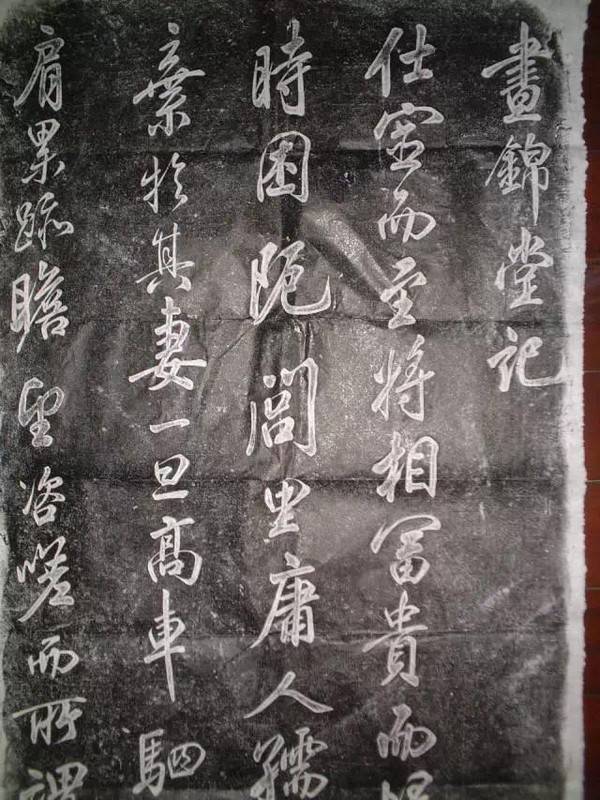 晝錦堂記
仕宦而至將相冨貴而歸
時困阨閭里庸人孺
棄扵其妻一旦髙車駟
肩累跡瞻望咨嗟而所謂